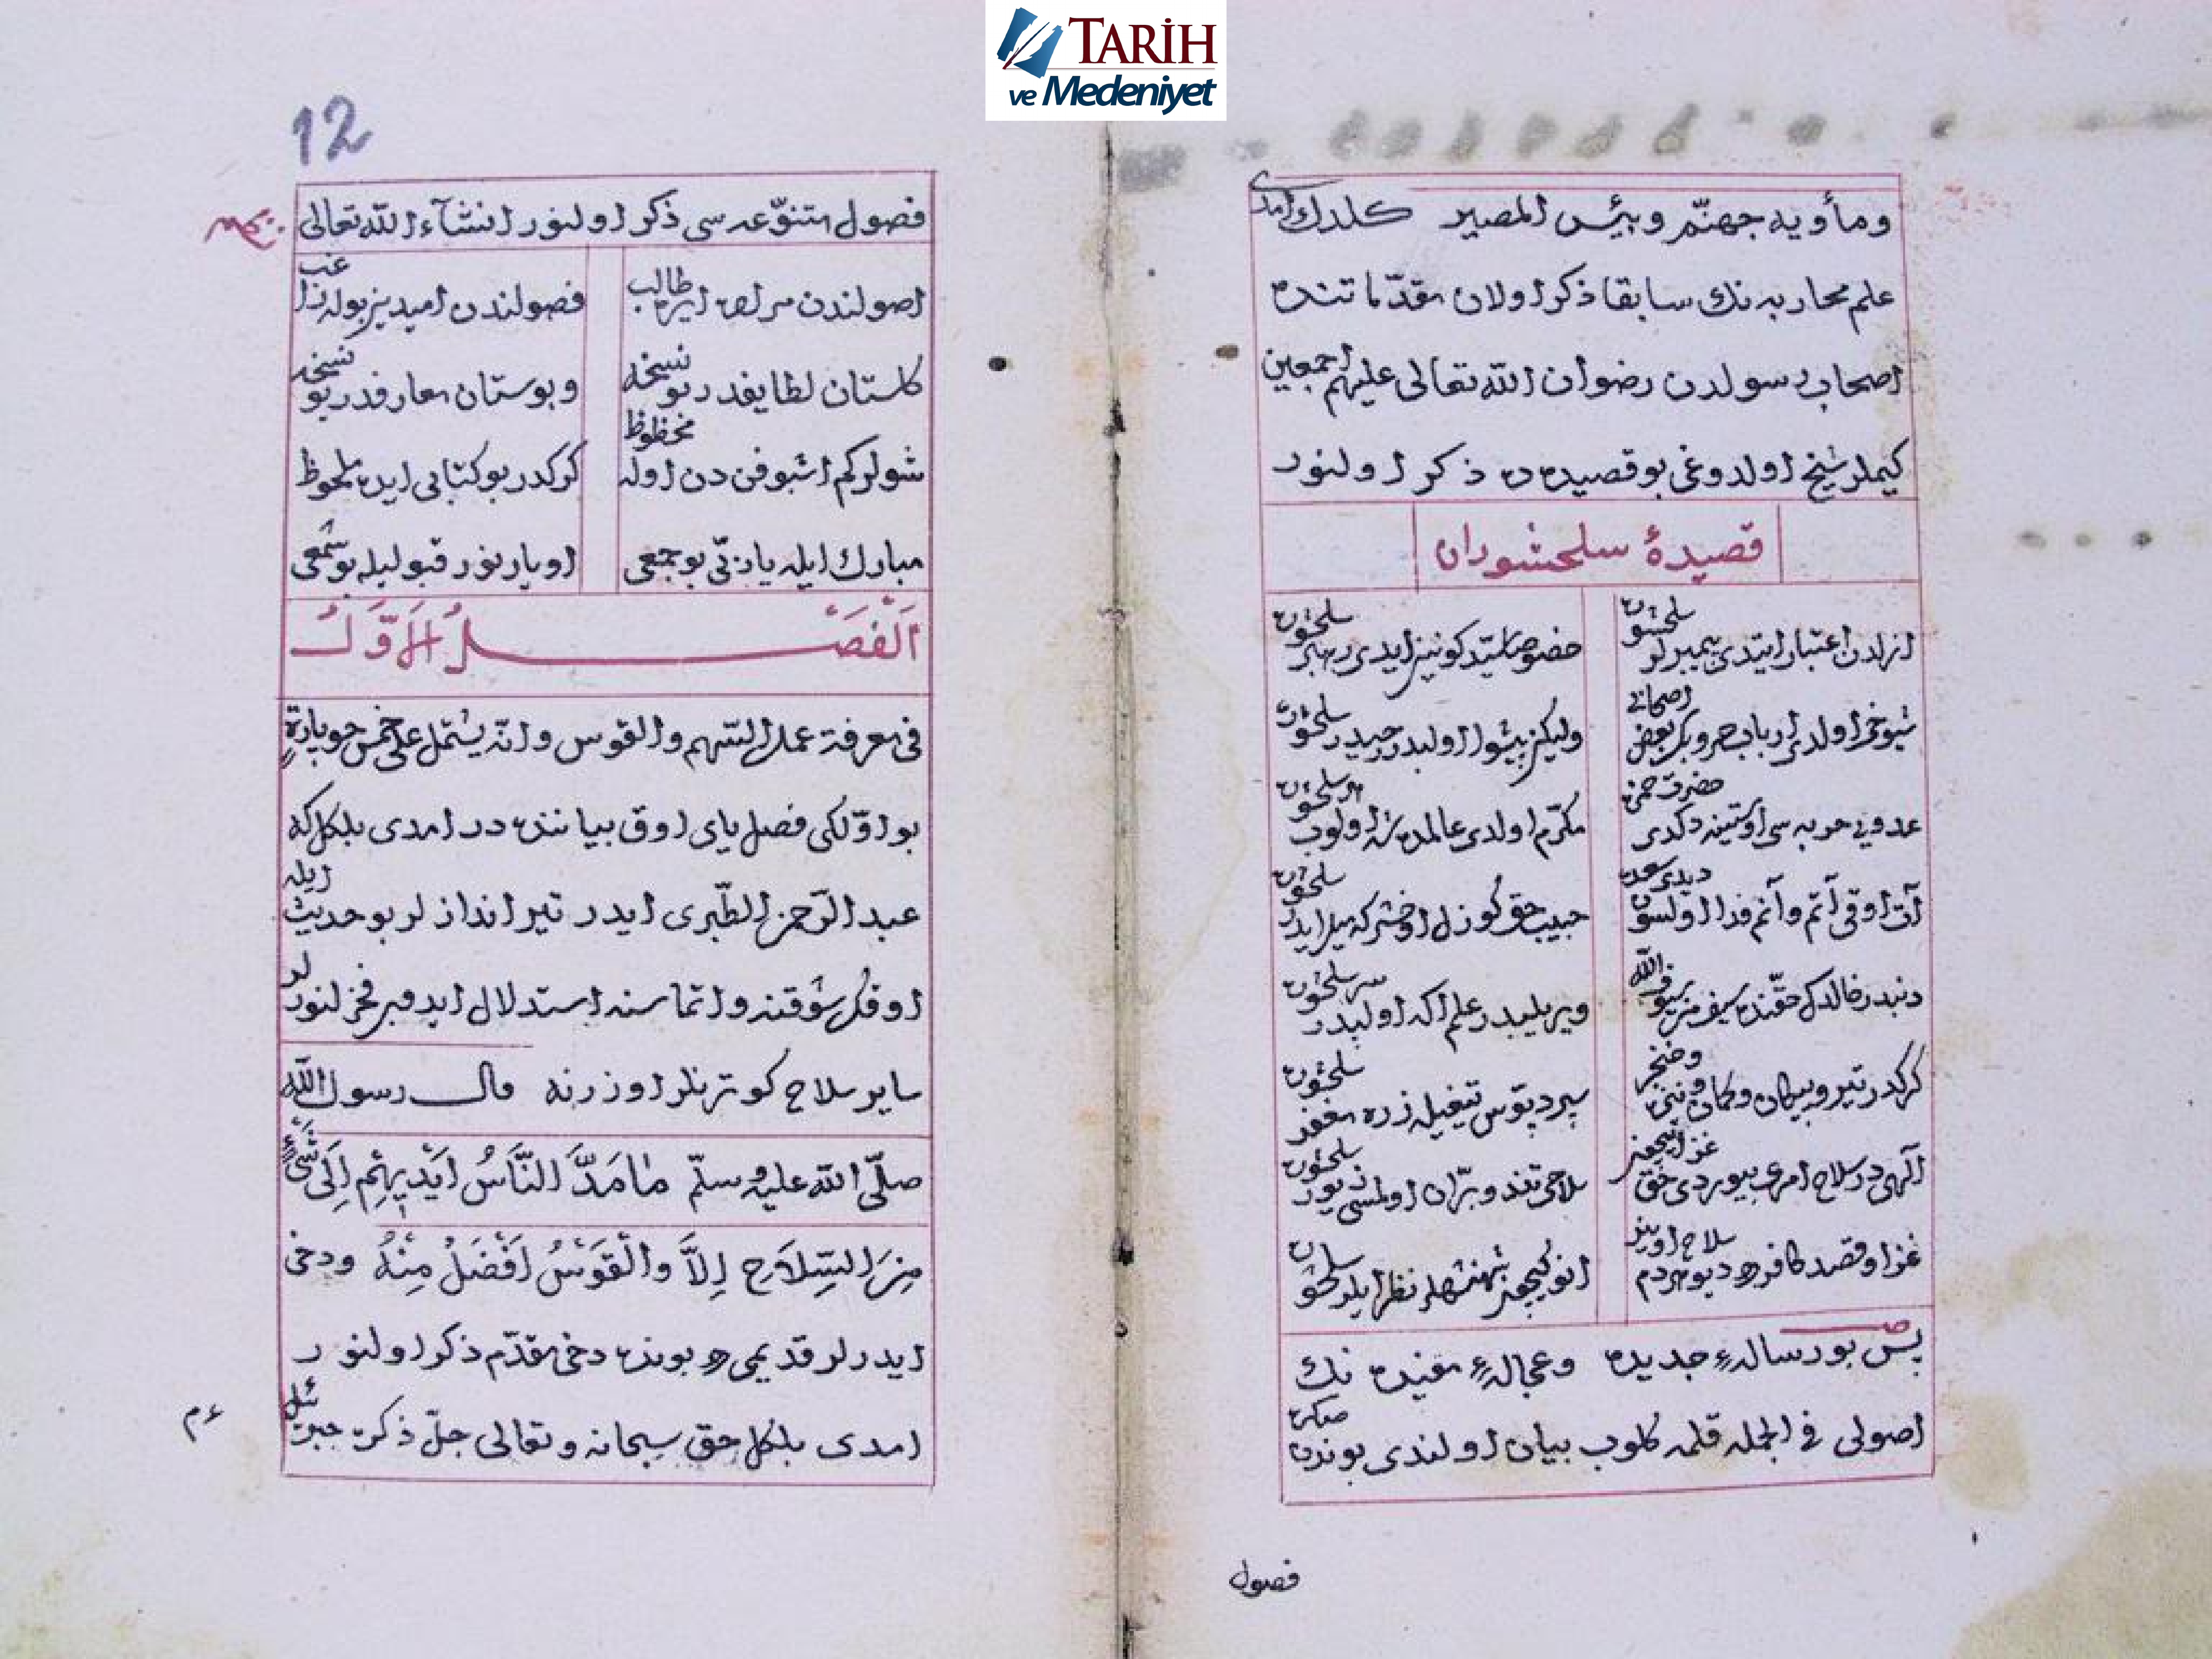 TARİH
ve Medeniyet
ومأويه جهنّم وبئس المصير كلدك امدى
علم محاربه نك سابقا ذكر اولان مقدّماتنده
اصحاب رسولدن رضوان الله تعالى عليهم اجمعين
كيملر شيخ اولدوغى بو قصيده ده ذكر اولنور
قصيدهٔ سلحشوران
ازلدن اعتبار ايتدى پيمبرلر سلحشوره
خصوصا سيّد كونين ايدى رهبر سلحشوره
شيوخى اولدى ارباب حروبك بعض اصحابى
وليكن پيشوا اولبدر حيدر سلحشوره
عدويى حربه سى اوستينه دكدى حضرت حمزه
مكرّم اولدى عالمده اولوب سلحشوره
آت اوقى آتم وآنم فدا اولسون ديدى سعده
حبيب حق كوزل سلحشوره
دنبدر خالدك حقّنده سيف من سيوف الله
ويريلبدر علم اكه اولبدر سر سلحشوره
كركدر تير وپيكان وكمان وخنجر
سپر دبّوس تيغيله زره مغفر سلحشوره
الهى در سلاح امرى بيوردى حق غزا ايچون
سلاحى تند وبرّان اولمسى زيور سلحشوره
غزا وقصد كافر
نظر ايلر سلحشوره
پس بو رسالهٔ جديده وعجالهٔ مفيده نك
اصولى فى الجمله قلمه كلوب بيان اولندى بوندن صكره
فصول
12
فصول متنوّعه سى ذكر اولنور انشآء الله تعالى
اصولندن مراده ايره طالب
فصولندن اميديز بوله راغب
كلستان لطايفدر بو نسخه
وبوستان معارفدر بو نسخه
شولر كم اشبو فن دن اوله محظوظ
كركدر بو كتابى ايده ملحوظ
مبارك ايله يا ربّى بو جمعى
اويار نور قبولله بو شمعى
اَلْفَصْلُ الْاَوَّلُ
فى معرفة عمل السّهم والقوس وانّه يشتمل على خمس حوبارةٍ
بو اوّلكى فصل ياى اوق بياننده در امدى بلكل كه
عبد الرّحمن الطّبرى ايدر تير اندازلر بو حديث ايله
اوقك شوقنه واتماسنه استدلال ايدوبر فخرلنورلر
ساير سلاح كوترنلر اوزرنه قال رسول الله
صلّى الله عليه وسلّم مٰا مَدَّ النَّاسُ اَيْدِيهِمْ اِلَى شَىْءٍ
مِنَ السِّلَاحِ اِلَّا وَالْقَوْسُ اَفْضَلُ مِنْهُ ودخى
ايدرلر قديمى بوندن دخى مقدّم ذكر اولنور
امدى بلكل حق سبحانه وتعالى جلّ ذكره جبرئيل
ء م